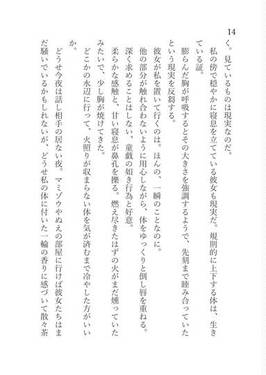 14
く。見ているものは現実なのだ。
　私の傍で穏やかに寝息を立てている彼女も現実だ。規則的に上下する体は、生き
ている証。
　膨らんだ胸が呼吸するとその大きさを強調するようで、先刻まで睦み合っていた
という現実を反芻する。
　彼女が私を置いて行くのは、ほんの、一瞬のことなのに。
　他の部分が触れ合わないように用心しながら、体をゆっくりと倒し唇を重ねる。
深く求めることはしない、童戯の如き行為と好意。
　柔らかな感触と、甘い寝息が鼻孔を擽る。燃え尽きたはずの火がまだ燻っていた
みたいで、少し胸が焼けてきた。
　どこかの水辺に行って、火照りが収まらない体を気が済むまで冷やした方がいい
か。
　どうせ今夜は話し相手の居ない夜、マミゾウやぬえの部屋に行けば彼女たちはま
だ騒いでいるかもしれないが、どうせ私の体に付いた一輪の香りに感づいて散々茶